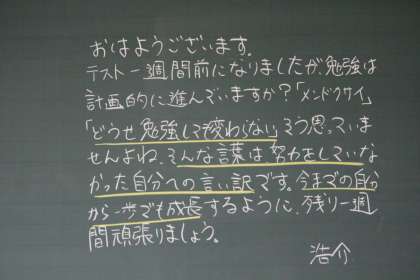 おはようございます。
テスト一週間前になりましたが、勉強は
計画的に進んでいますか?「メンドクサイ」
「どうせ勉強して変わらない」そう思っていま
せんよね。そんな言葉は努力をしていな
かった自分への言い訳です。今までの自分
から一歩でも成長するように、残り一週
間頑張りましょう。
浩介